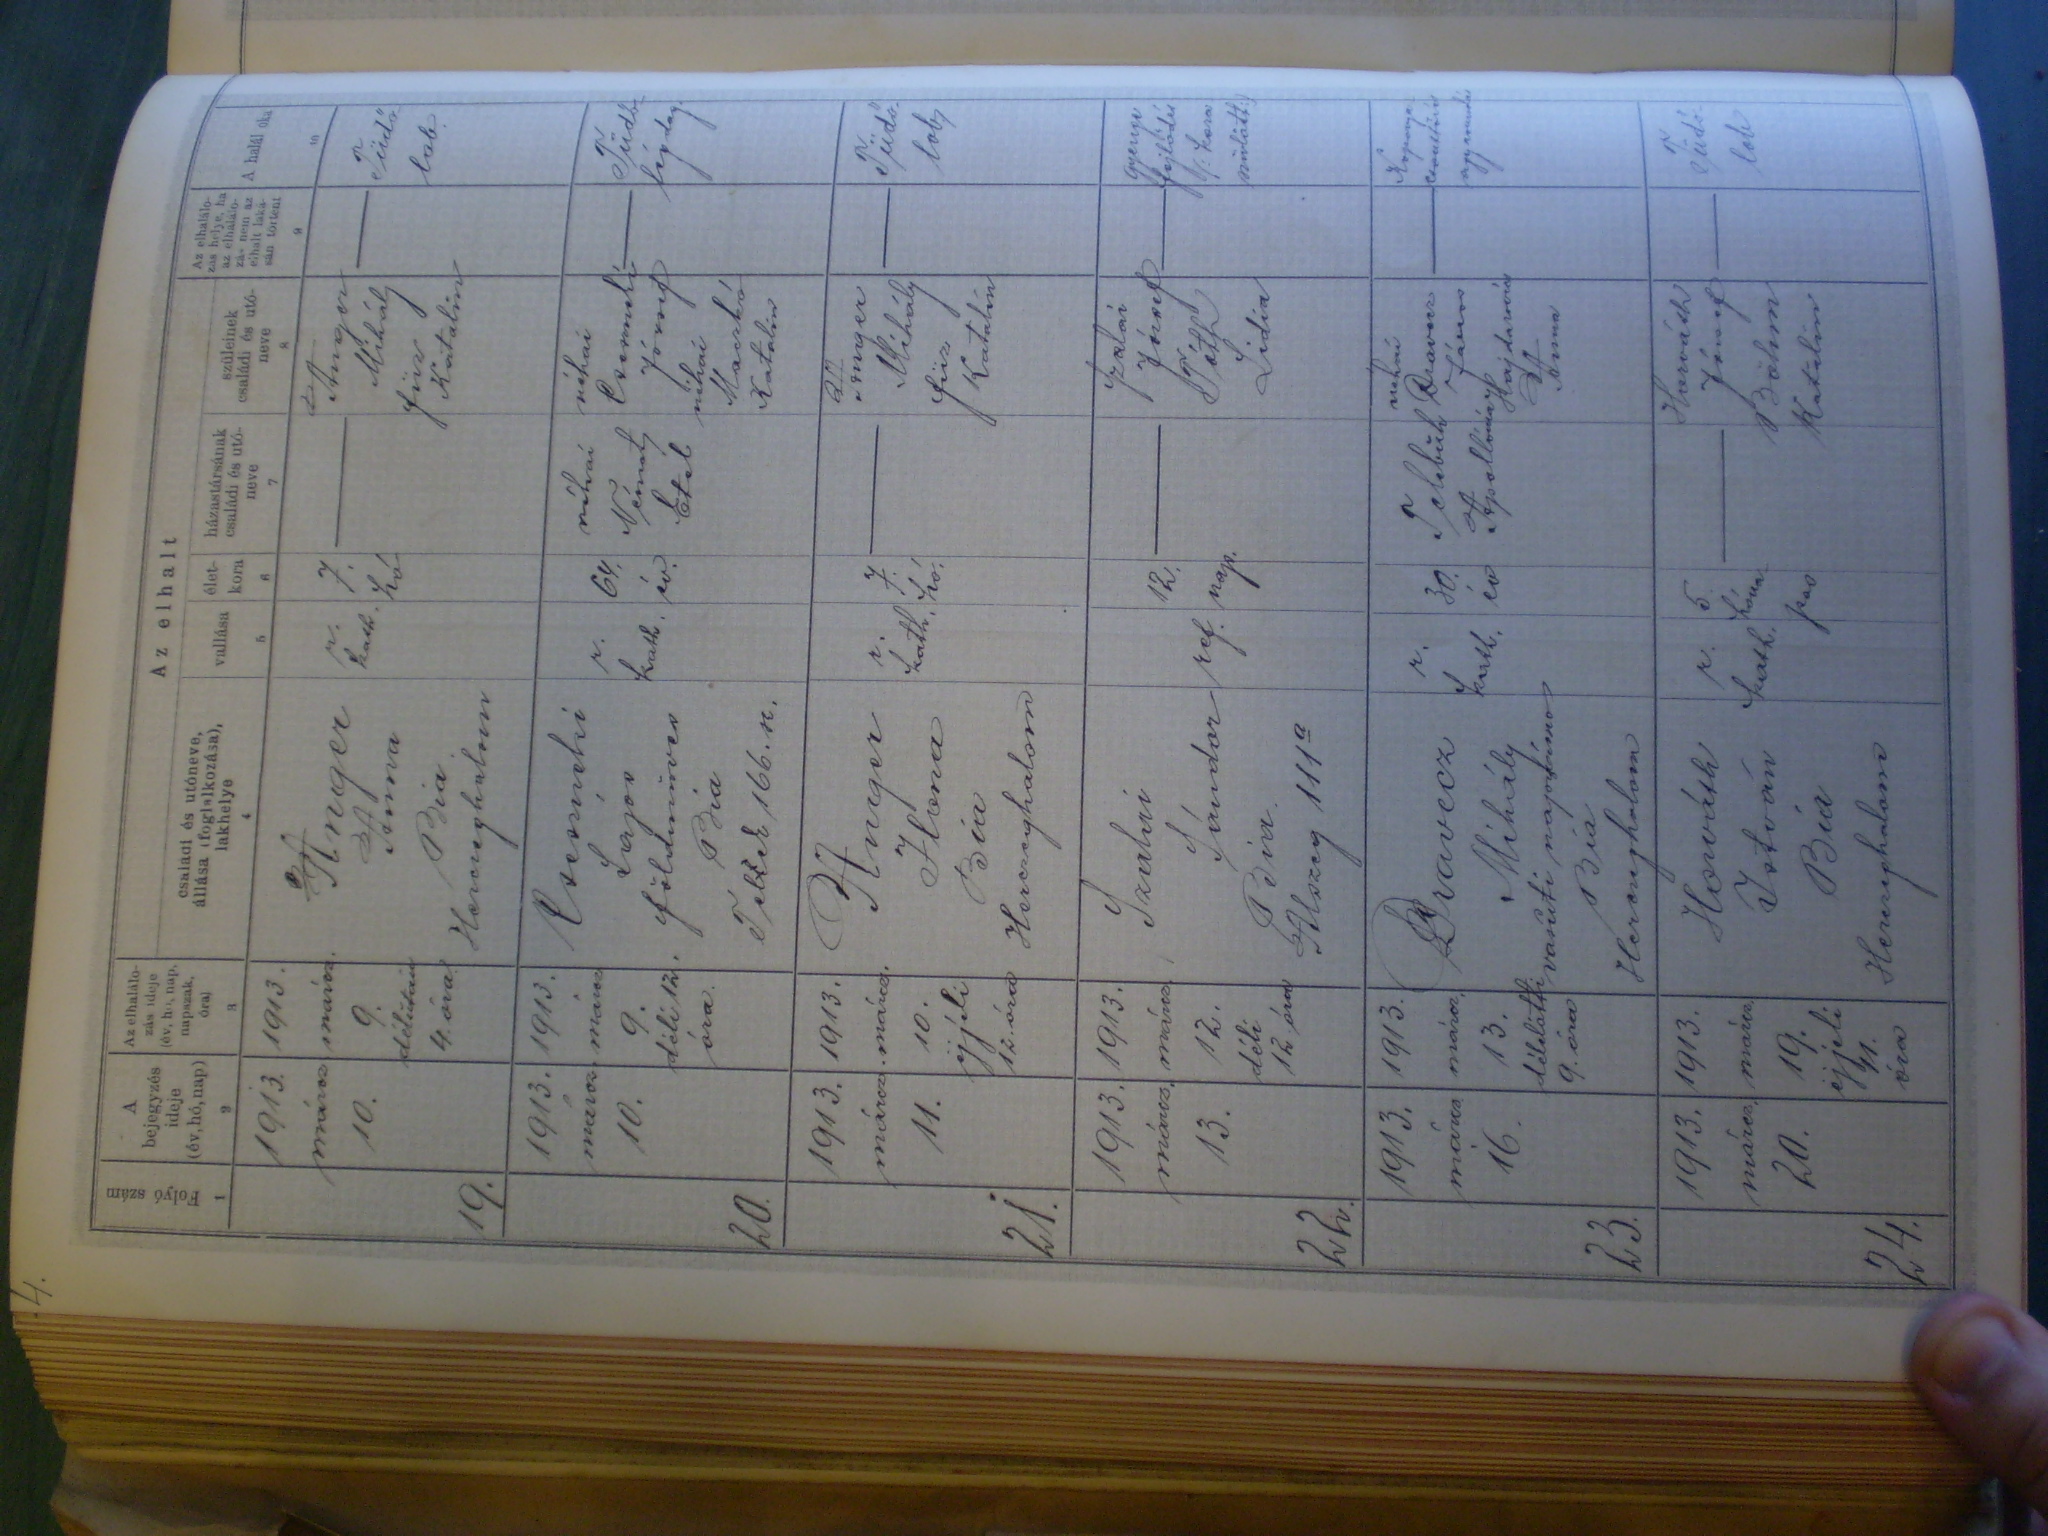 4.
Az elhalt
Folyó szám
A
bejegyzés
ideje
(év, hó, nap)
Az elhalálo-
zás ideje
(év, hó, nap,
napszak,
óra)
családi és utóneve,
állása (foglalkozása),
lakhelye
vallása
élet-
kora
házastársának
családi és utó-
neve
szüleinek
családi és utó-
neve
Az elhalálo-
zás helye, ha
az elhalálo-
zás nem az
elhalt laká-
sán történt
A halál oka
1
2
3
4
5
6
7
8
9
10
19.
1913.
márcz
10.
1913.
márcz.
9.
délután
4. óra
Unger
Anna
Bia
Herczeghalom
r.
kath.
7.
hó
Unger
Mihály
Katalin
Tüdő
lob.
20.
1913.
márcz
10.
1913.
márcz
9.
déli 12.
óra.
Lajos
földmüves
Bia
166. n.
r.
kath.
64.
év.
néhai
Németh
Etel
néhai
József
néhai
Katalin
Tüdő
légdag.
21.
1913.
márcz.
11.
1913.
márcz.
10.
éjjeli
12. óra
Unger
Ilona
Bia
Herczeghalom
r.
kath.
7.
hó.
Unger
Mihály
Katalin
Tüdő
lob
22.
1913.
márcz.
13.
1913.
márcz.
12.
déli
12 óra
Szalai
Sándor
Bia
Alszeg 111a
ref.
12.
nap.
Szalai
József
Tóth
Lidia
23.
1913.
márcz
16.
1913.
márcz.
13.
délelőtti
9. óra
Dravecz
Mihály
vasuti
Bia
Herczeghalom
r.
kath.
30.
év
néhai
Dravecz
János
Anna
24.
1913.
márcz
20.
1913.
márcz
19.
éjjeli
11.
óra
Horváth
István
Bia
Herczeghalom
r.
kath.
5.
hóna-
pos
Horváth
József
Böhm
Katalin
Tüdő
lob